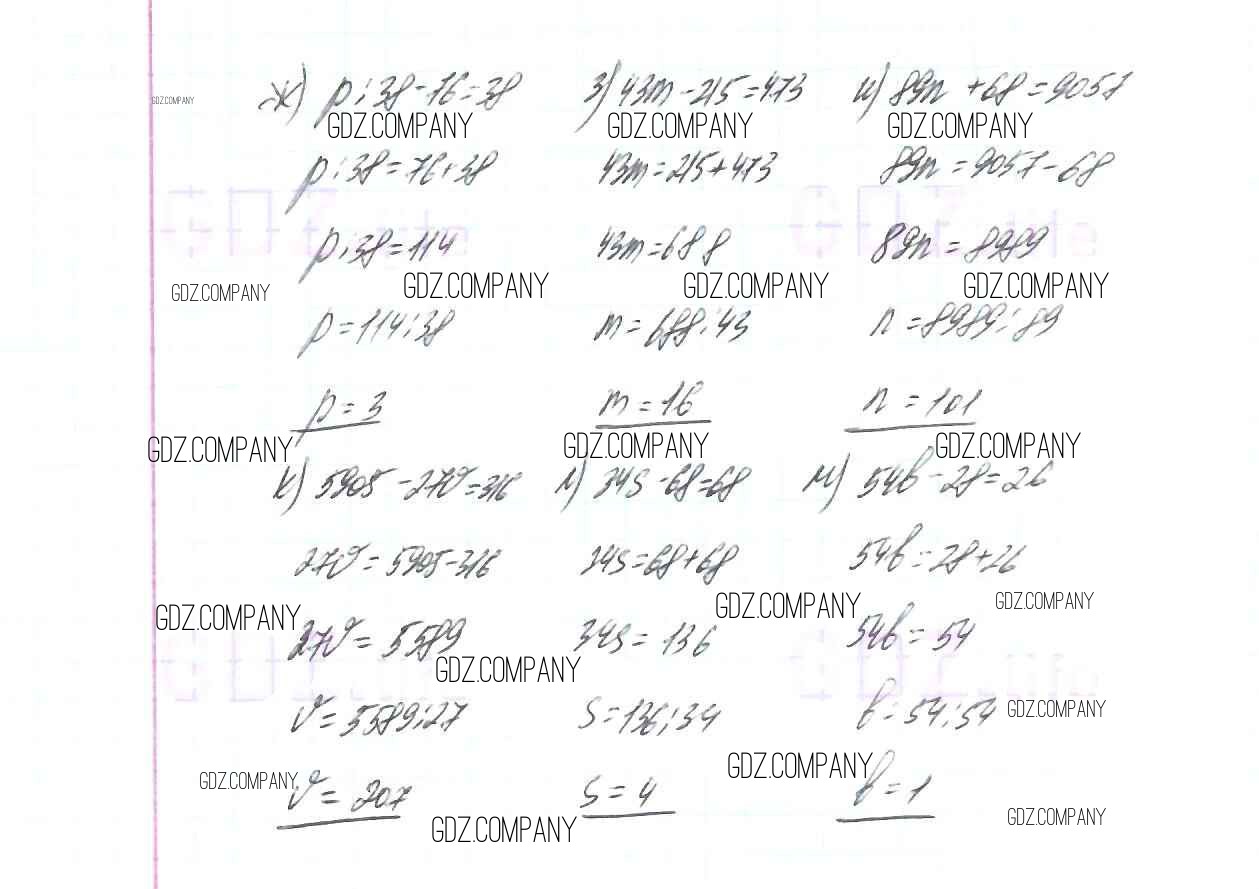 GDZ.COMPANY
ж) p:38-76=38 з) 43m-215=473 и) 89n+68=9057
GDZ.COMPANY GDZ.COMPANY GDZ.COMPANY
p:38=76+38 43m=215+473 89n=9057-68
p:38=114 43m=688 89n=8989
GDZ.COMPANY GDZ.COMPANY GDZ.COMPANY GDZ.COMPANY
p=114:38 m=688:43 n=8989:89
p=3 m=16 n=101
GDZ.COMPANY GDZ.COMPANY GDZ.COMPANY
к) 5905-27v=316 л) 34s-68=68 м) 54b-28=26
27v=5905-316 34s=68+68 54b=28+26
GDZ.COMPANY GDZ.COMPANY GDZ.COMPANY
27v=5589 34s=136 54b=54
GDZ.COMPANY
v=5589:27 s=136:34 b=54:54
GDZ.COMPANY
GDZ.COMPANY GDZ.COMPANY
v=207 s=4 b=1
GDZ.COMPANY GDZ.COMPANY